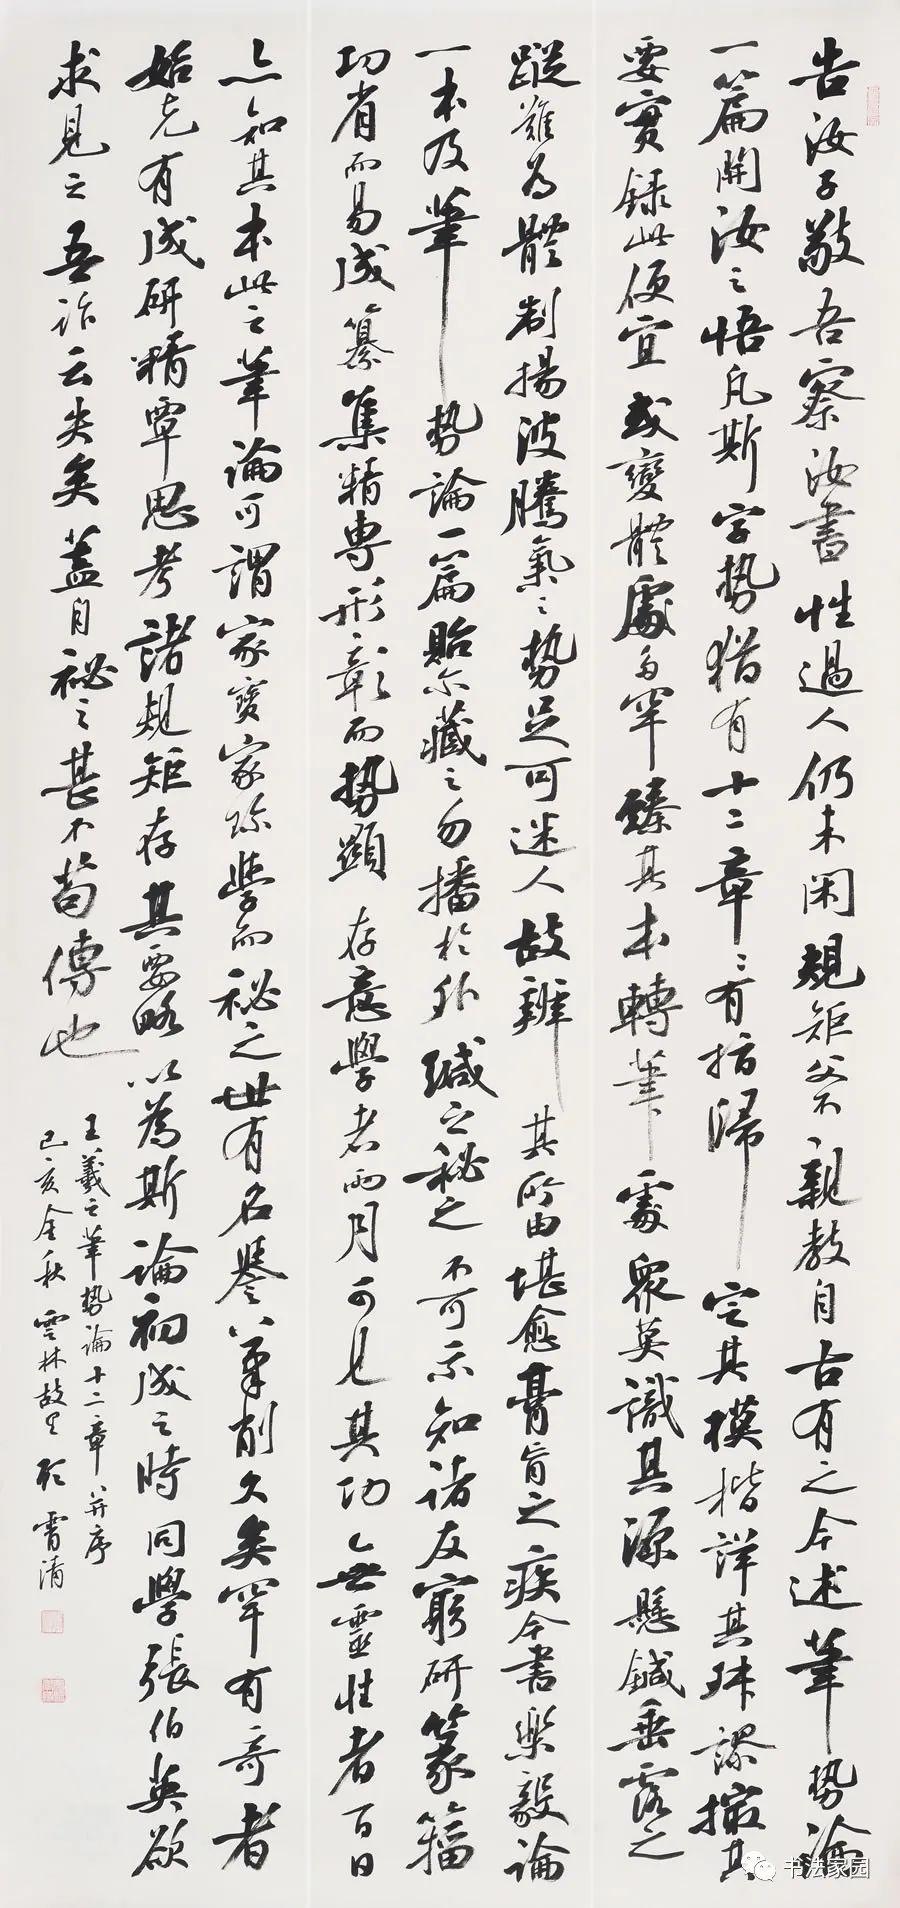 告汝子敬吾察汝書性過人仍未闲規矩父不親教自古有之今述筆势論
一篇開汝之悟凡斯字势猶有十二章章有指歸定其模楷詳其殊謬撮其
要實録此便宜或變體處多罕臻其本轉筆處眾莫識其源懸鍼垂露之
蹤難為體制揚波騰氣之势足可迷人故辨其所由堪愈膏肓之疾今書樂毅論
一本及筆势論一篇貽尔藏之勿播於外緘之秘之不可示知諸友窮研篆籀
功省而易成纂集精專形彰而势顯存意學者兩月可見其功無靈性者百日
亦知其本此之筆論可謂家寶家珍學而秘之世有名譽筆削久矣罕有奇者
始克有成研精覃思考諸規矩存其要略以為斯論初成之時同學張伯英欲
求見之吾詐云失矣蓋自秘之甚不苟傳也
王羲之筆势論十二章并序
己亥金秋雲林故里 霄清
书法家园